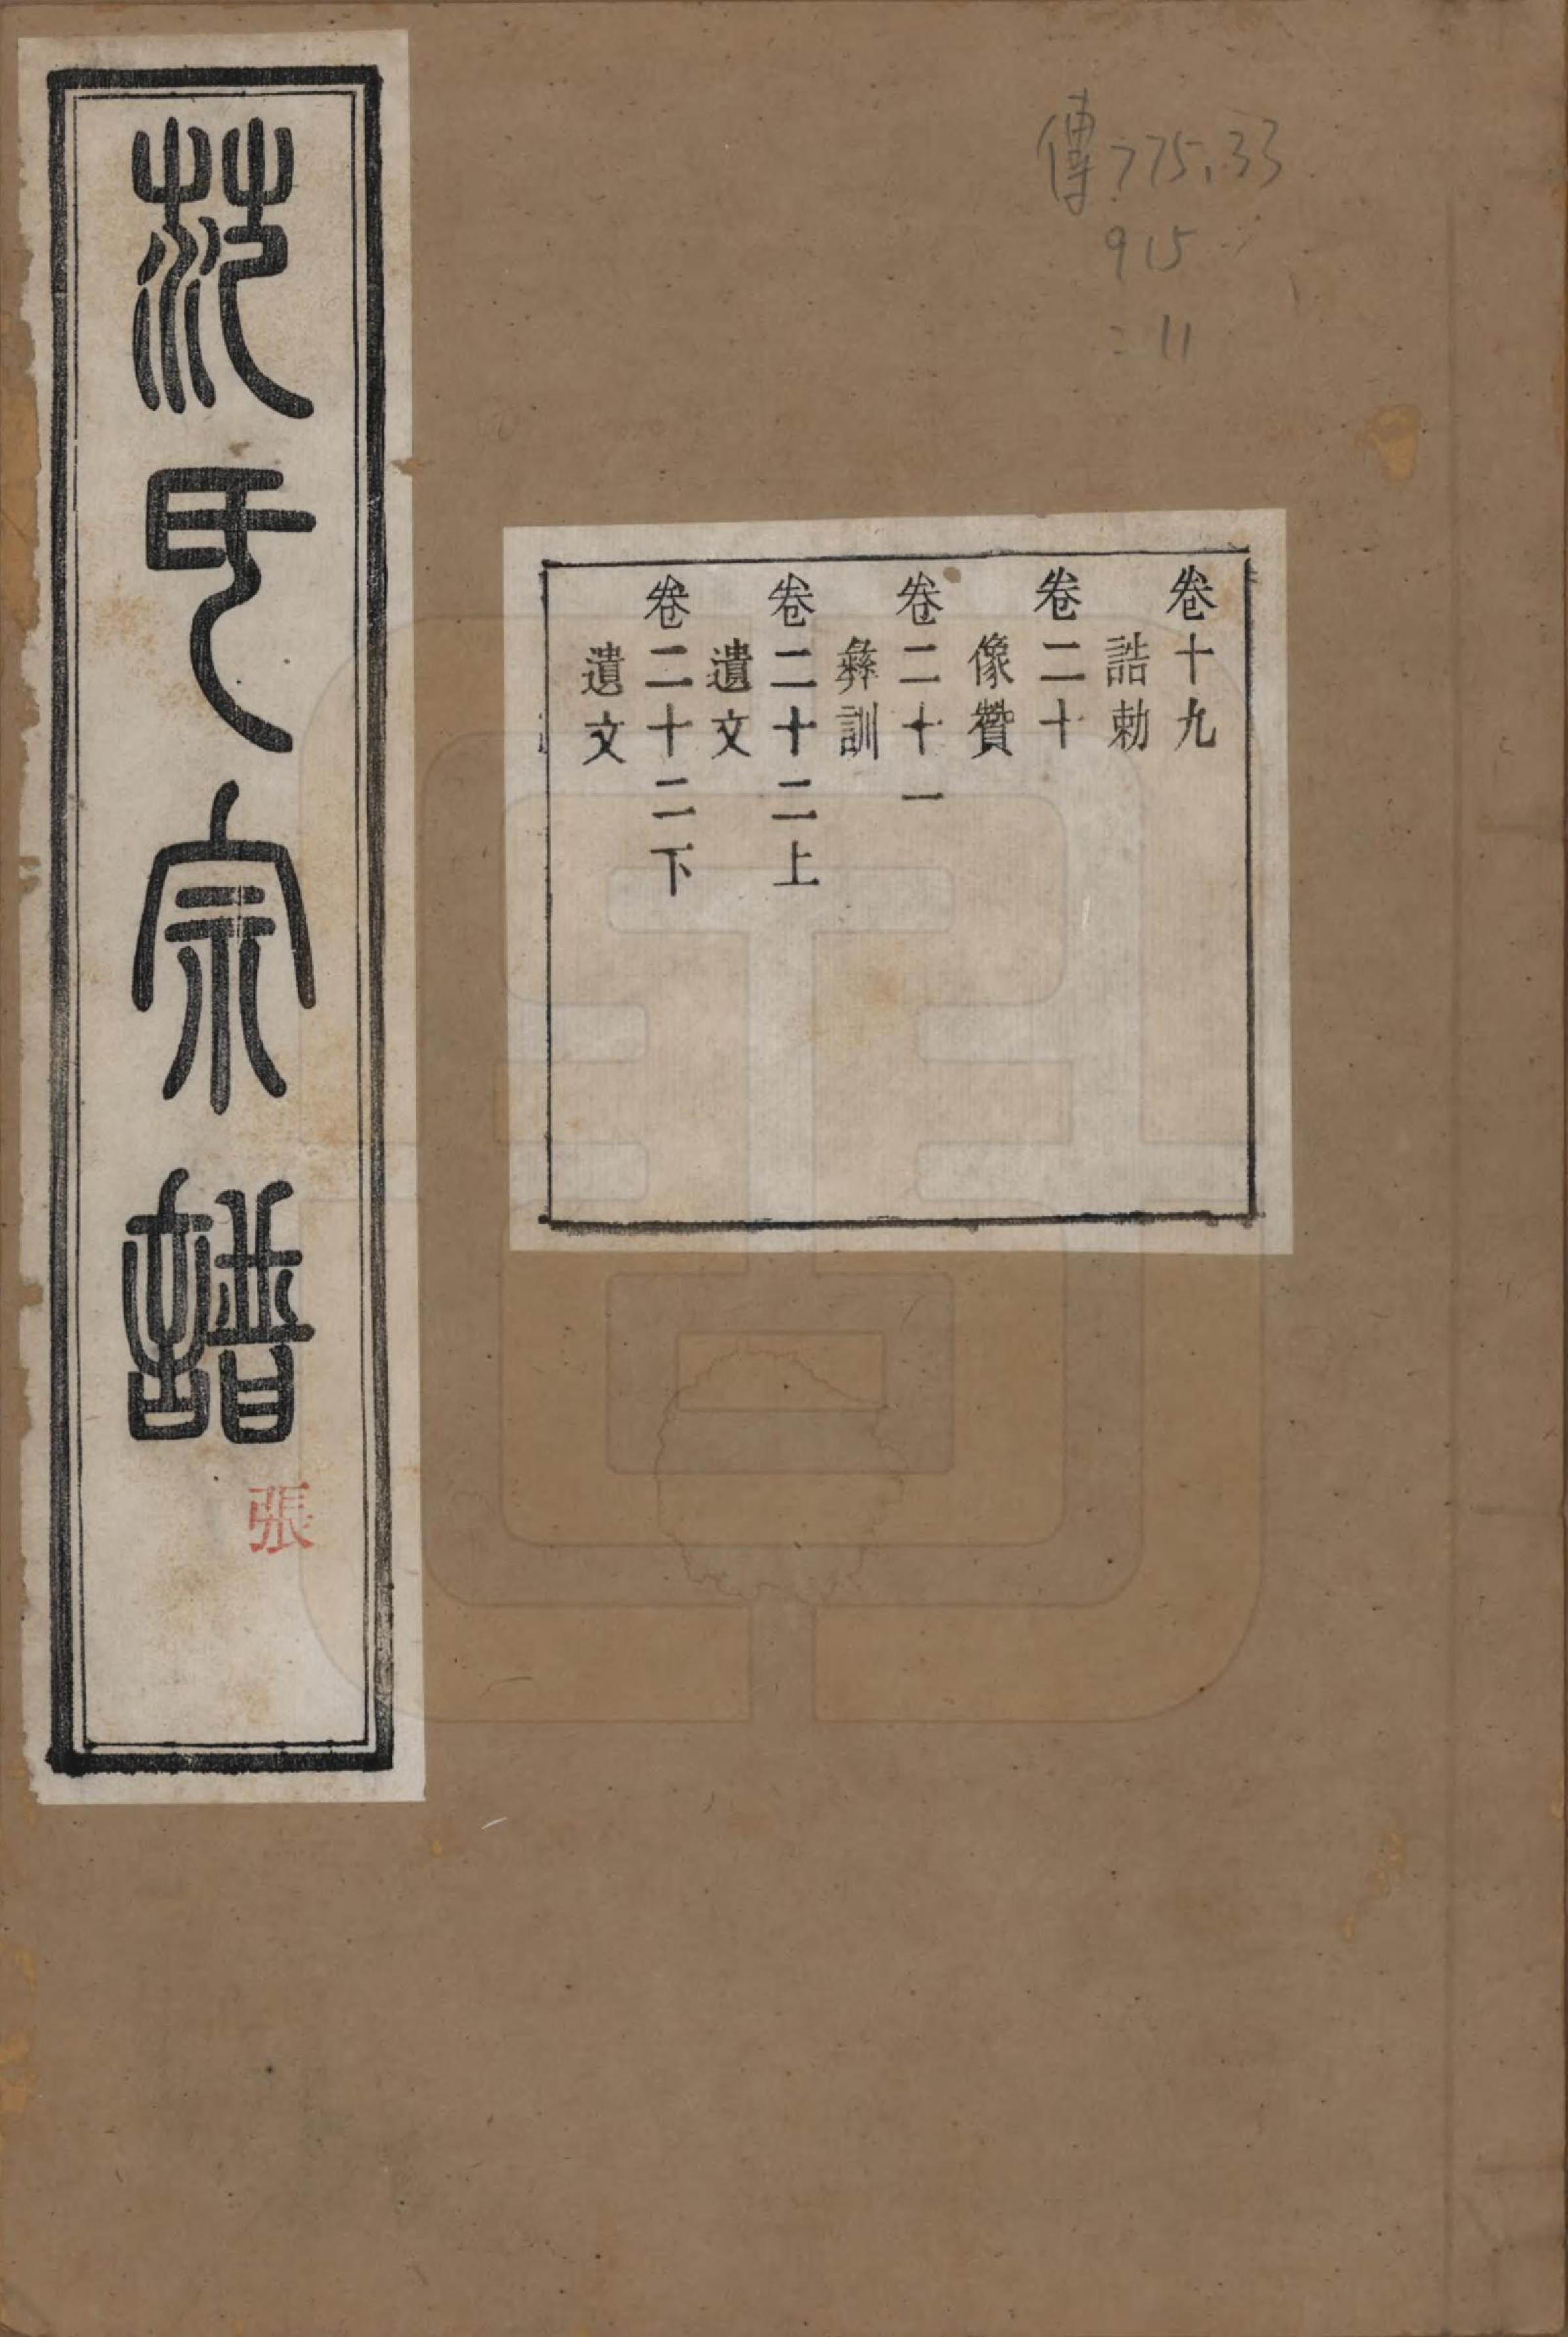 傳775.33
915
:11
卷十九
誥勅
卷二十
像贊
卷二十一
彝訓
卷二十二上
遺文
卷二十二下
遺文
范氏宗譜
張